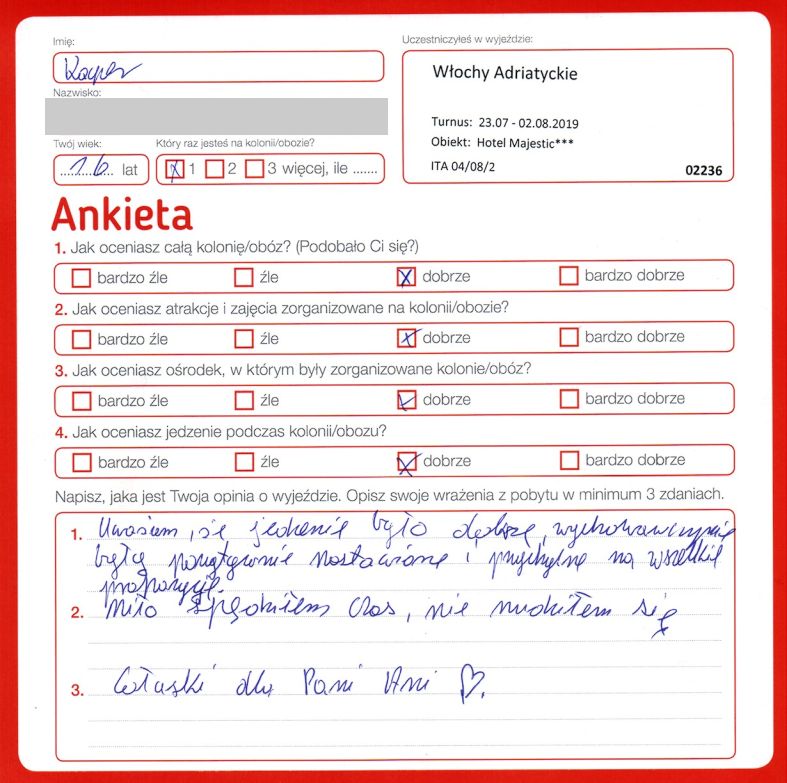 Imię:
Kacper
Nazwisko:
Twój wiek:
16 lat
Który raz jesteś na kolonii/obozie?
X 1 2 3 więcej, ile .......
Uczestniczyłeś w wyjeździe:
Włochy Adriatyckie
Turnus: 23.07 - 02.08.2019
Obiekt: Hotel Majestic***
ITA 04/08/2 02236
Ankieta
1. Jak oceniasz całą kolonię/obóz? (Podobało Ci się?)
bardzo źle źle X dobrze bardzo dobrze
2. Jak oceniasz atrakcje i zajęcia zorganizowane na kolonii/obozie?
bardzo źle źle X dobrze bardzo dobrze
3. Jak oceniasz ośrodek, w którym były zorganizowane kolonie/obóz?
bardzo źle źle dobrze bardzo dobrze
4. Jak oceniasz jedzenie podczas kolonii/obozu?
bardzo źle źle X dobrze bardzo dobrze
Napisz, jaka jest Twoja opinia o wyjeździe. Opisz swoje wrażenia z pobytu w minimum 3 zdaniach.
1. Uważam, że jedzenie było dobrze, wychowawczynie
były pozytywnie nastawione i przychylne na wszelkie
propozycje.
2. Miło spędziłem czas, nie nudziłem się
3. Całuski dla Pani Ani ♡.